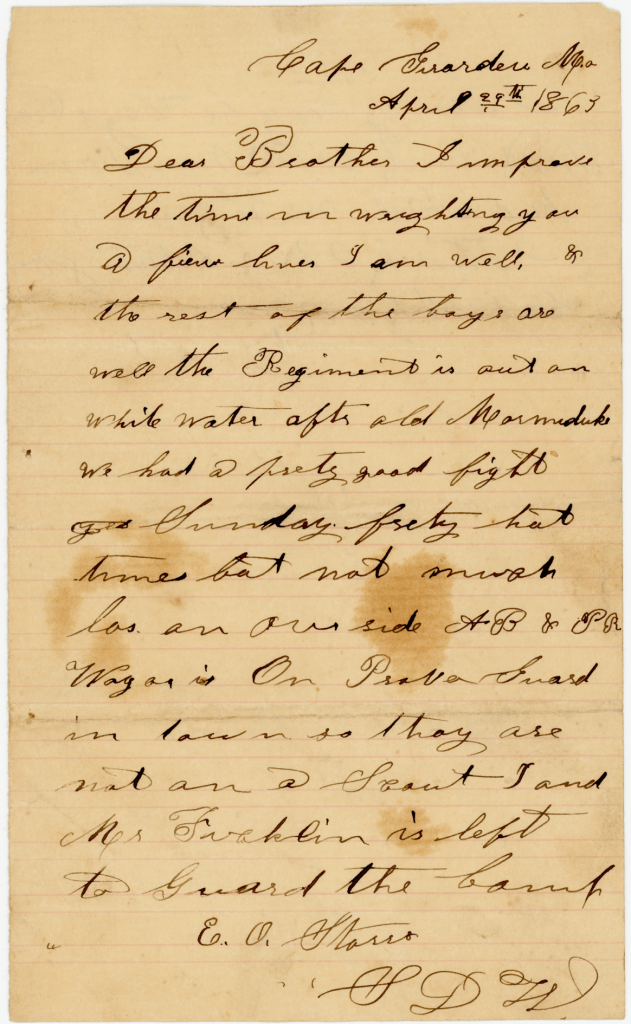 Cape Girardeu Mo
April 29th 1863
Dear Brother I improve
the time in wrighting you
a fiew lines I am well, &
the rest of the boys are
well the Regiment is out on
white water aftr old Marmeduke
we had a prety good fight
Sunday. prety hot
times bot not mutch
los on our side A B & P R
Wagar is On Provo Guard
in town so thay are
not on a Scout I and
Mr Franklin is left
to Guard the Camp
E. O. Storrs
S D W